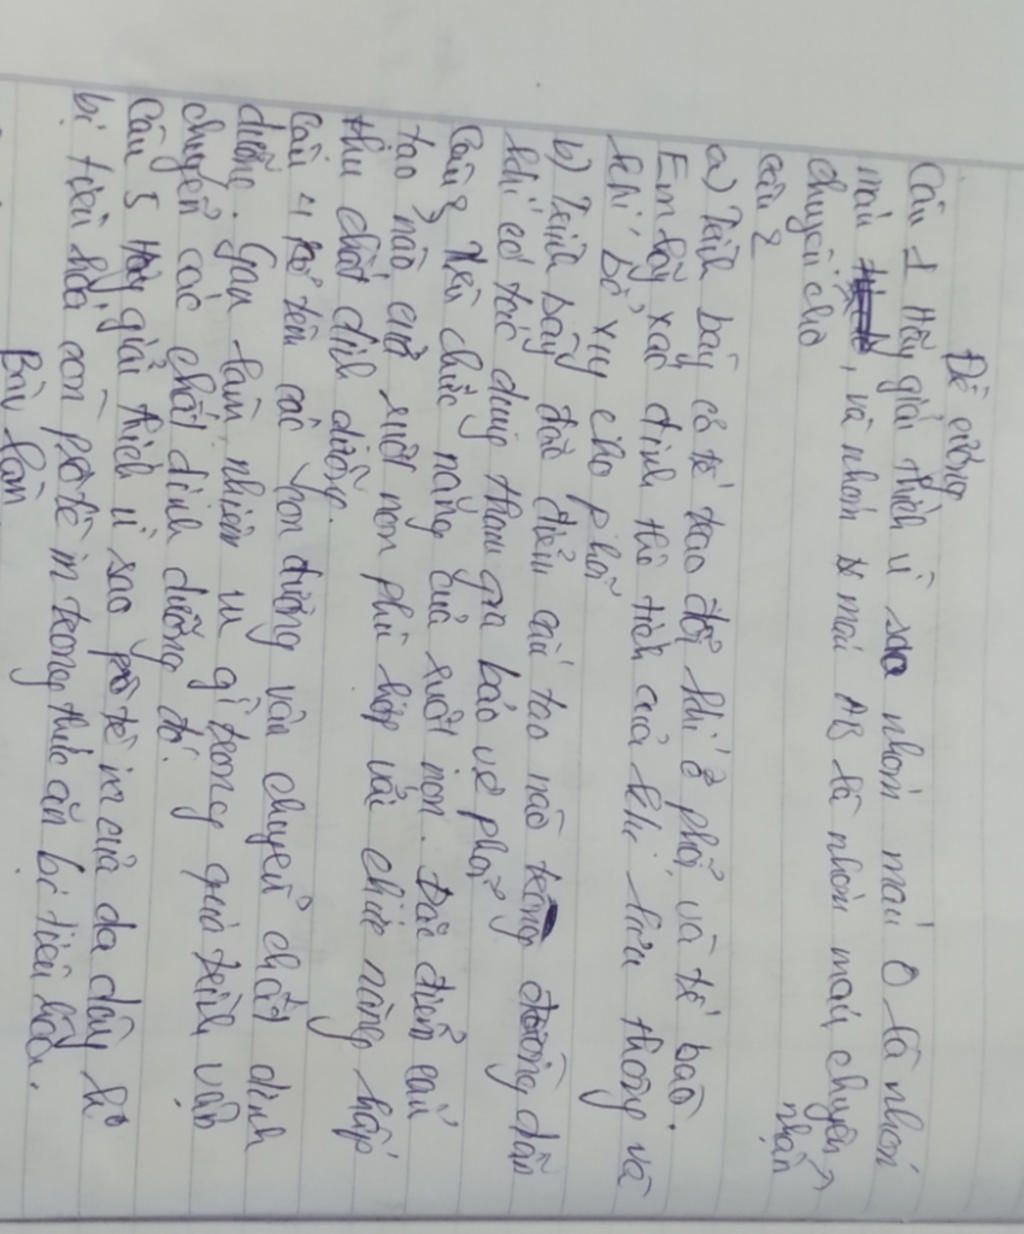 Đề cương
Câu 1 Hãy giải thích vì sao nhóm máu O là nhóm
máu chuyên cho, và nhóm máu AB là nhóm máu chuyên nhận
Câu 2
a) Trình bày cơ tế trao đổi khí ở phổi và tế bào.
Em hãy xác định thể tích của khí lưu thông và
khí bổ xug cho phổi
b) Trình bày đặc điểm cấu tạo nào trong đường dẫn
khí có tác dụng tham gia bảo vệ phổi
Câu 3 Nêu chức năng của ruột non. Đặc điểm cấu
tạo nào của ruột non phù hợp với chức năng hấp
thu chất dinh dưỡng.
Câu 4 Kể tên các con đường vân chuyển chất dinh
dưỡng. Gan làm nhiêm vụ gì trong quá trình vận
chuyển các chất dinh dưỡng đó.
Câu 5 Hãy giải thích vì sao pơtêin của dạ dày ko
bị tiêu hóa còn pơtêin trong thức ăn bi tiêu hóa.
Bài làm